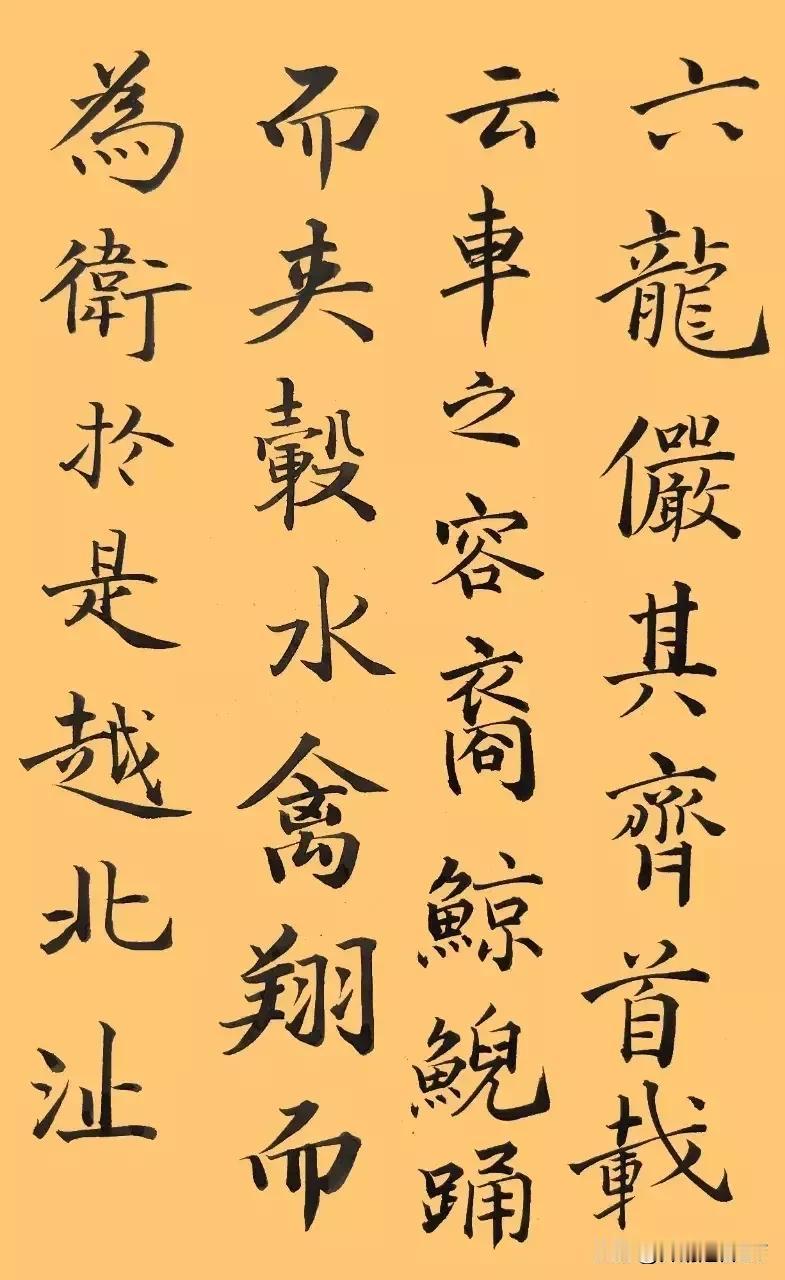 六龍儼其齊首載
云車之容裔鯨鯢踊
而夾轂水禽翔而
為衛於是越北沚